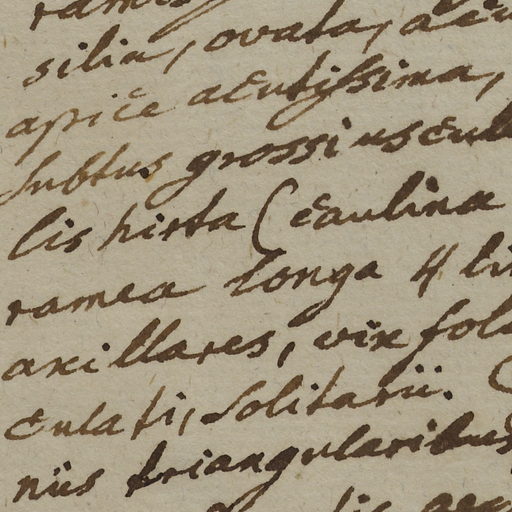 silia, ovata, acu
apice acutissima,
subtus grossiuscul
lis hirta (caulina
ramea longa 4 li
axillares, vix fol
culati, solitarii. (
niis triangularibus